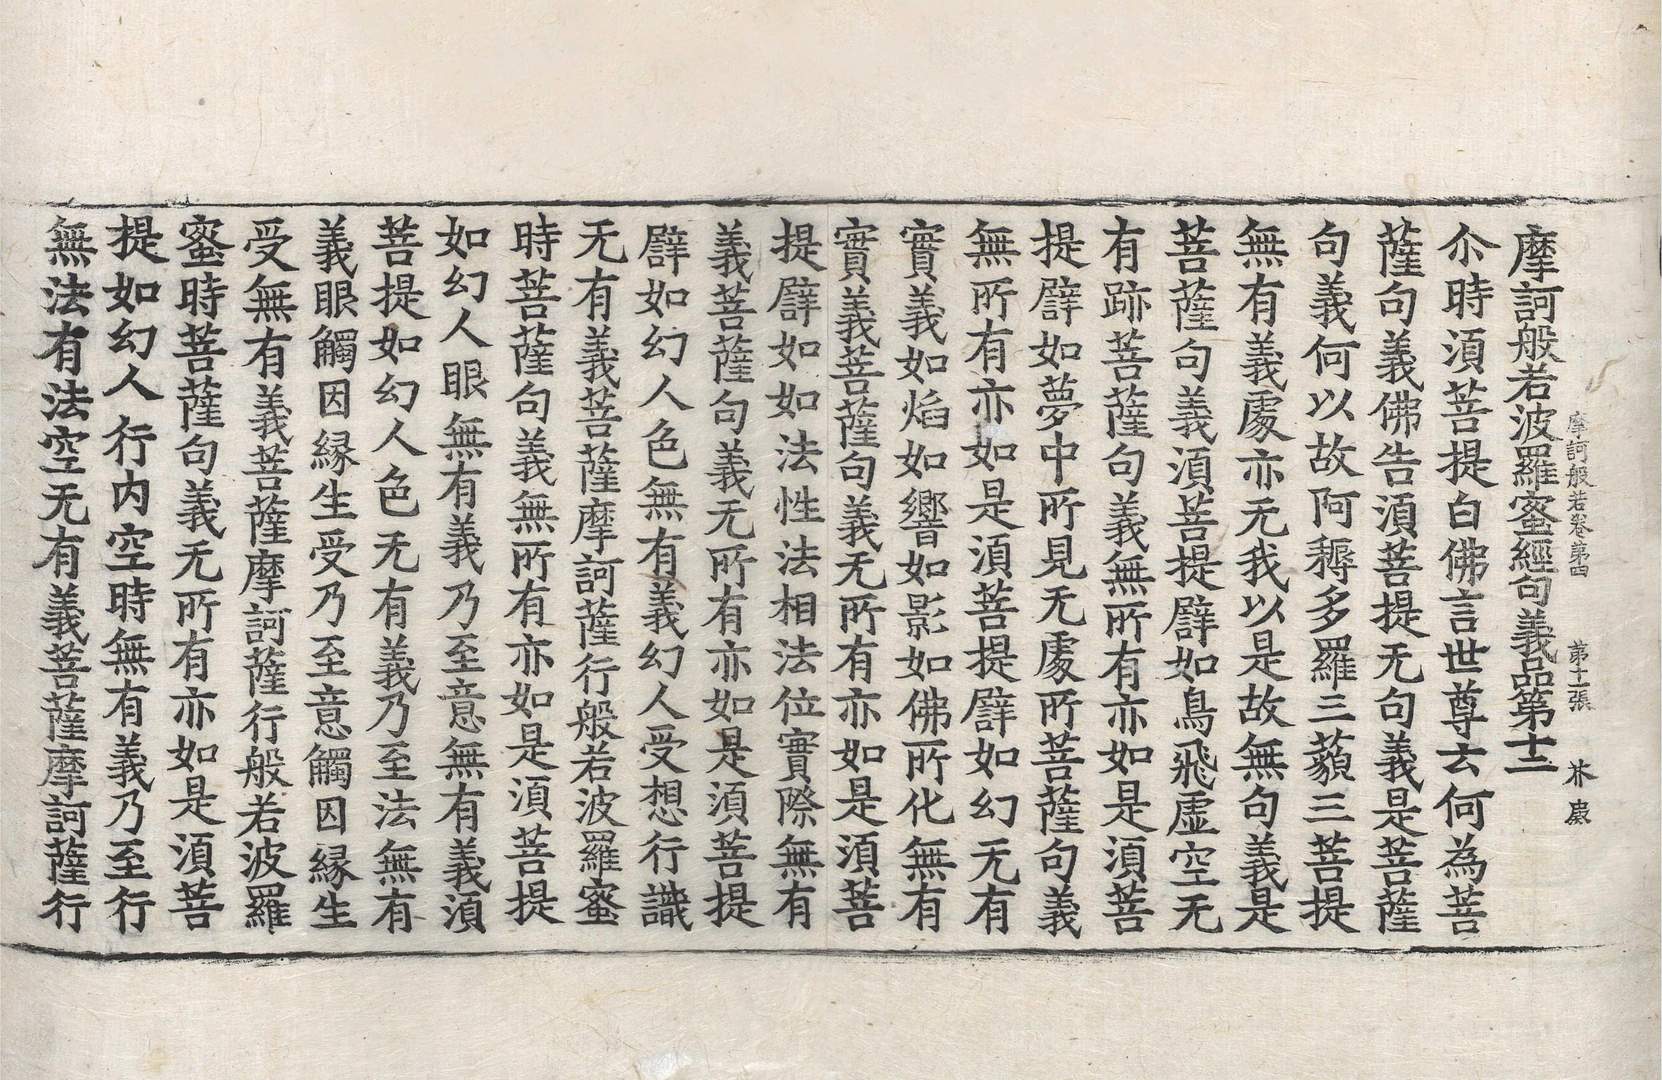 摩訶般若卷第四　第十二張　芥　𢈔
摩訶般若波羅蜜經句義品第十二
尒時須菩提白佛言世尊云何為菩
薩句義佛告須菩提无句義是菩薩
句義何以故阿耨多羅三藐三菩提
無有義處亦无我以是故無句義是
菩薩句義須菩提譬如鳥飛虛空无
有跡菩薩句義無所有亦如是須菩
提譬如夢中所見无處所菩薩句義
無所有亦如是須菩提譬如幻无有
實義如焰如響如影如佛所化無有
實義菩薩句義无所有亦如是須菩
提譬如如法性法相法位實際無有
義菩薩句義无所有亦如是須菩提
譬如幻人色無有義幻人受想行識
无有義菩薩摩訶薩行般若波羅蜜
時菩薩句義無所有亦如是須菩提
如幻人眼無有義乃至意無有義須
菩提如幻人色无有義乃至法無有
義眼觸因緣生受乃至意觸因緣生
受無有義菩薩摩訶薩行般若波羅
蜜時菩薩句義无所有亦如是須菩
提如幻人行内空時無有義乃至行
無法有法空无有義菩薩摩訶薩行